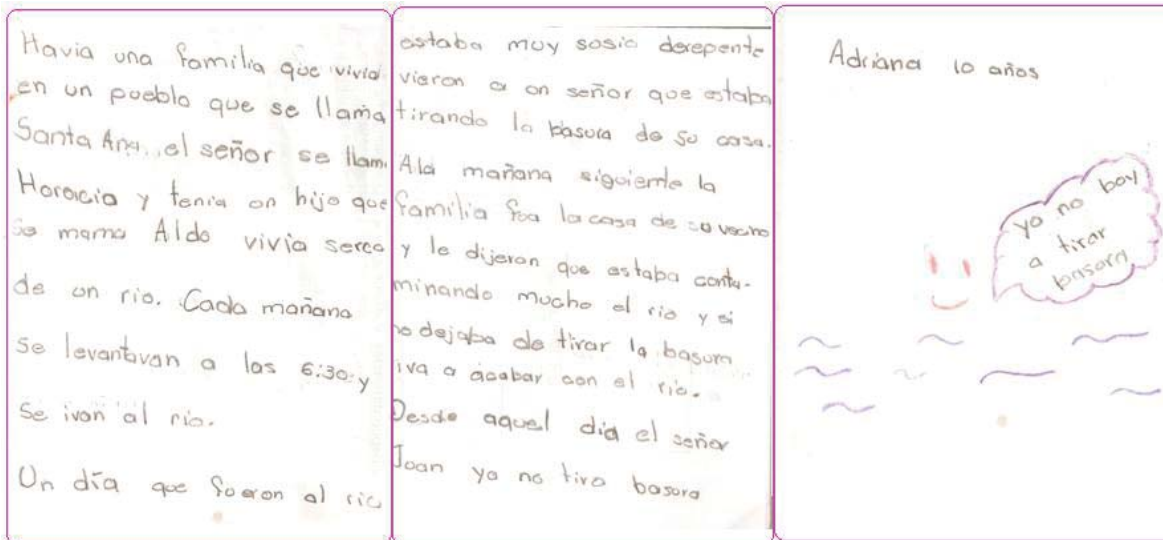 Havia una familia que vivia
en un pueblo que se llama
Santa Ana, el señor se llam
Horacio y tenia on hijo que
se mama Aldo vivia serca
de un rio. Cada mañana
se levantavan a las 6:30 y
se ivan al rio.
Un día que fueron al rio
estaba muy sosio derepente
vieron a on señor que estaba
tirando la basura de su casa.
Ala mañana siguiente la
familia fua la casa de su vecno
y le dijeron que estaba conta-
minando mucho el rio y si
no dejaba de tirar la basura
iva a acabar con el rio.
Desde aquel dia el señor
Joan ya no tiro basora
Adriana 10 años
ya no boy
a tirar
basora